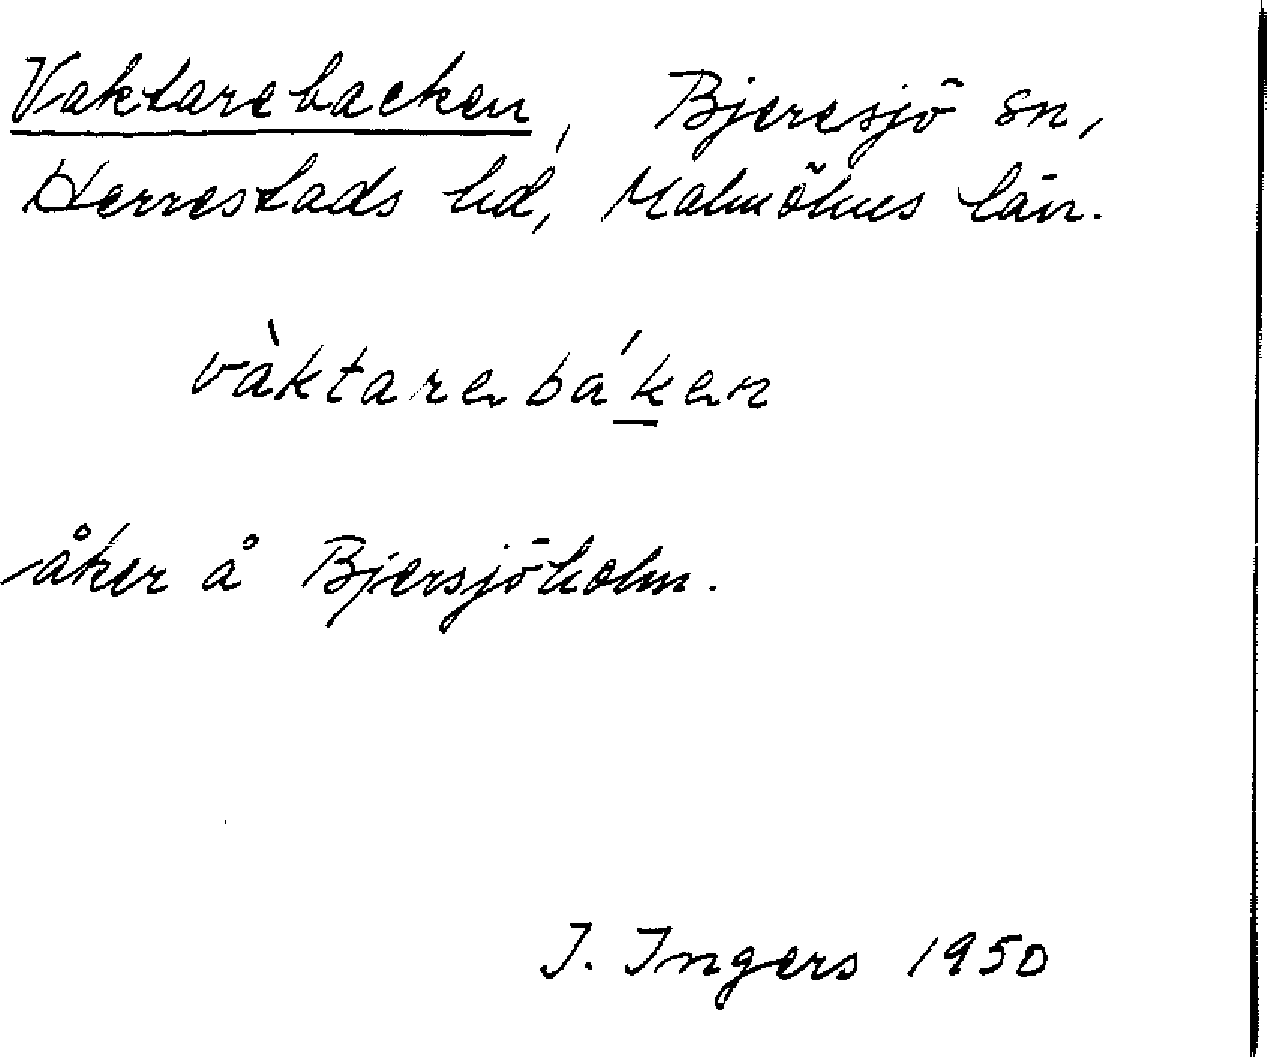 Vaktarebacken, Bjeresjö sn,
Herrestads hd, Malmöhus län.
vàktarebáken
åker å Bjersjöholm.
I. Ingers 1950